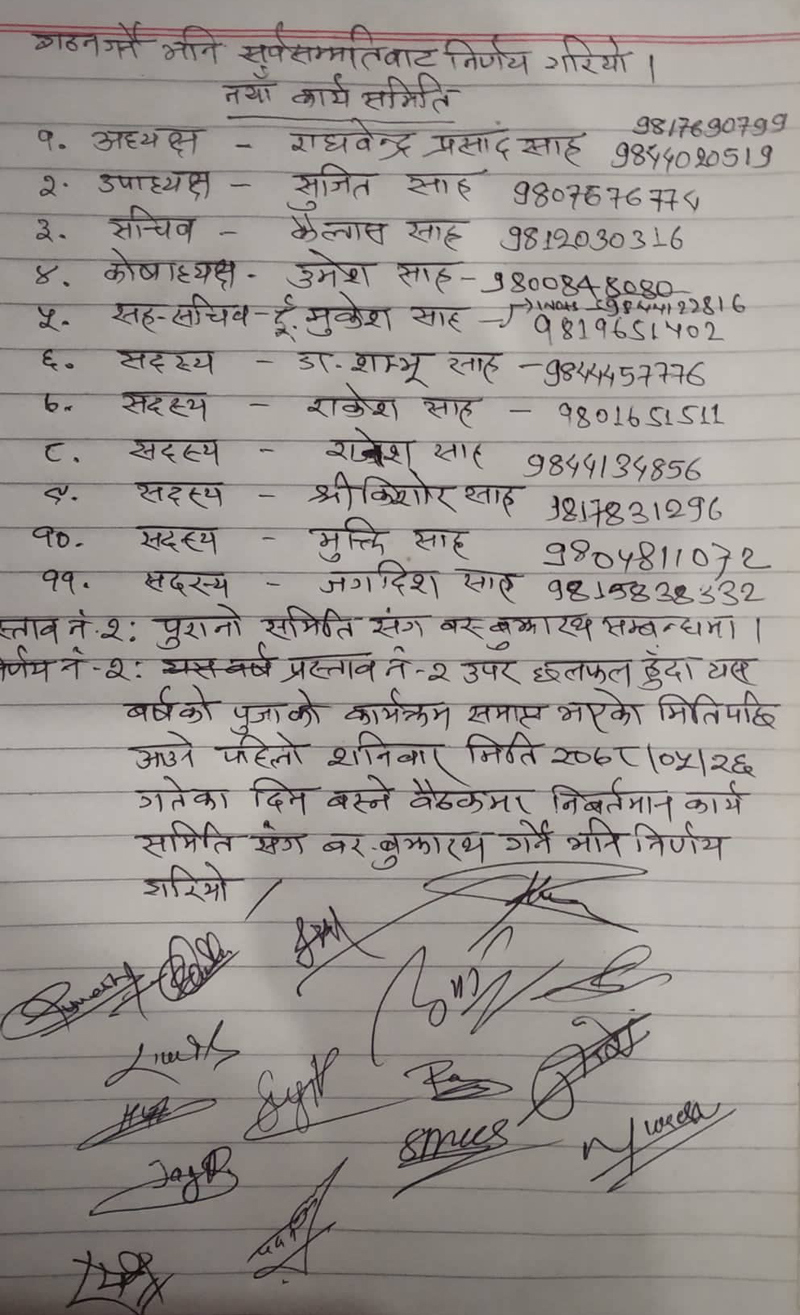 गठन गर्ने भनि सर्वसम्मतिबाट निर्णय गरियो ।
नयाँ कार्य समिति
१. अध्यक्ष - राघवेन्द्र प्रसाद साह 9817690799
9844020519
२. उपाध्यक्ष - सुजित साह 9807676774
३. सचिव - कैलास साह 9812030316
४. कोषाध्यक्ष - उमेश साह - 9800848080
५. सह-सचिव - ई. मुकेश साह - 9844122816
9819651402
६. सदस्य - डा. शम्भू साह - 9844457776
७. सदस्य - राकेश साह - 9801651511
८. सदस्य - राजेश साह 9844134856
९. सदस्य - श्री किशोर साह 9817831296
१०. सदस्य - मुक्ति साह 9804811072
११. सदस्य - जगदिश साह 9815838332
स्ताव नं-२: पुरानो समिति संग बरबुझारथ सम्बन्धमा ।
र्णय नं-२: प्रस्ताव नं-२ उपर छलफल हुँदा यस
बर्षको पुजाको कार्यक्रम समाप्त भएको मितिपछि
आउने पहिलो शनिबार मिति २०७८/०५/२६
गतेका दिन बस्ने बैठकमा निबर्तमान कार्य
समिति संग बर-बुझारथ गर्ने भनि निर्णय
गरियो